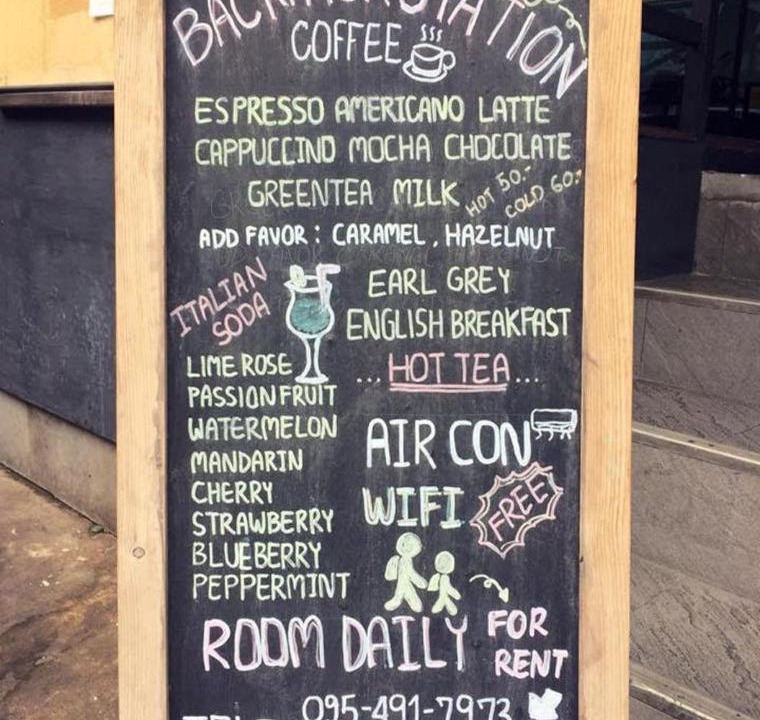 STATION
COFFEE
ESPRESSO AMERICANO LATTE
CAPPUCCINO MOCHA CHOCOLATE
GREENTEA MILK
HOT 50.-
COLD 60.-
ADD FAVOR: CARAMEL, HAZELNUT
ITALIAN
SODA
LIME ROSE
PASSIONFRUIT
WATERMELON
MANDARIN
CHERRY
STRAWBERRY
BLUEBERRY
PEPPERMINT
EARL GREY
ENGLISH BREAKFAST
... HOT TEA ...
AIR CON
WIFI
FREE
ROOM DAILY
FOR
RENT
095-491-7973